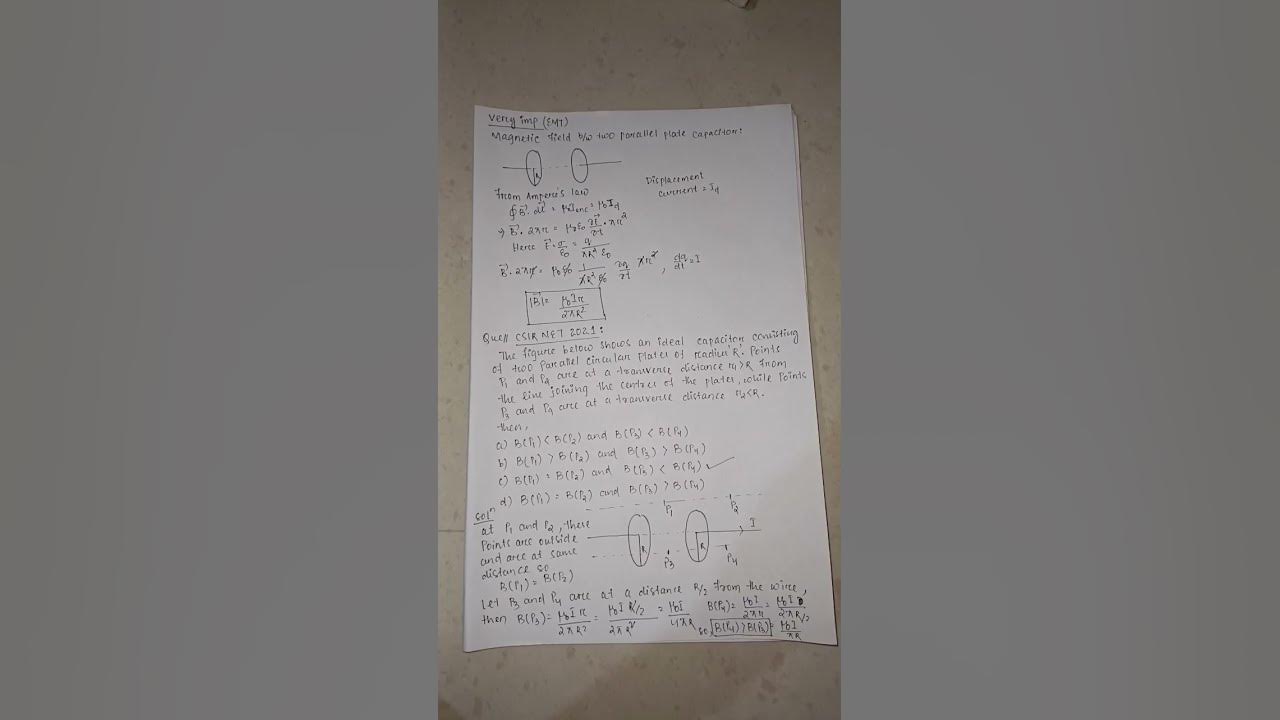 Very imp (EMT)
Magnetic field b/w two parallel plate capacitor:
R
From Ampere's law
Displacement
current = I_d
∮B⃗·dl⃗ = μ₀I_enc = μ₀I_d
⇒ B⃗·2πr = μ₀ε₀ ∂E⃗/∂t · πr²
Here E⃗ = σ/ε₀ = q/πR²ε₀
B⃗·2πr = μ₀ε₀ 1/πR²ε₀ ∂q/∂t πr² , dq/dt = I
|B⃗| = μ₀Ir/2πR²
Que// CSIR NET 2021:
The figure below shows an ideal capacitor consisting
of two parallel circular plates of radius 'R'. Points
P₁ and P₂ are at a tranverse distance r₁>R from
the line joining the centres of the plates, while Points
P₃ and P₄ are at a tranverse distance r₂<R.
then,
a) B(P₁) < B(P₂) and B(P₃) < B(P₄)
b) B(P₁) > B(P₂) and B(P₃) > B(P₄)
c) B(P₁) = B(P₂) and B(P₃) < B(P₄) ✓
d) B(P₁) = B(P₂) and B(P₃) > B(P₄)
solⁿ
at P₁ and P₂, these
Points are outside
and are at same
distance so
B(P₁) = B(P₂)
P₁ P₂
R R I
P₃ P₄
Let P₃ and P₄ are at a distance R/2 from the wire,
then B(P₃) = μ₀Ir/2πR² = μ₀I R/2/2πR² = μ₀I/4πR B(P₄) = μ₀I/2πr = μ₀I/2πR/2
so, B(P₄) > B(P₃) = μ₀I/πR